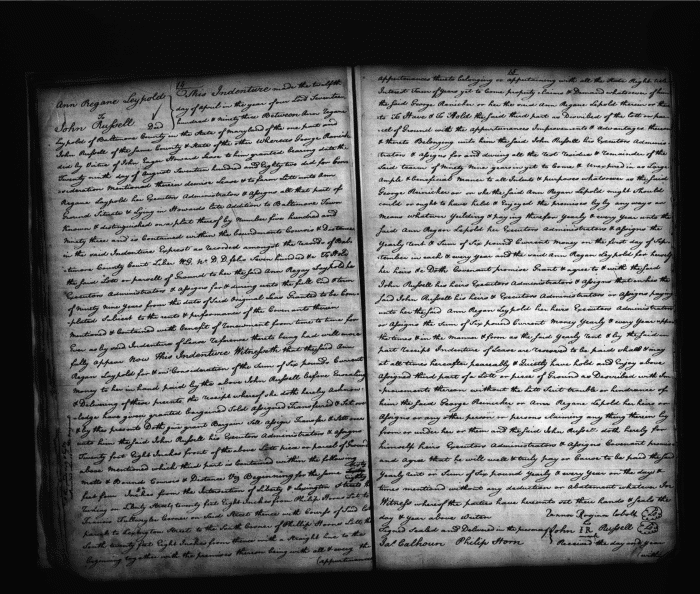 Ann Regane Leypold
to
John Russell
Ded
This Indenture made the twelfth
day of April in the year of our Lord Seventeen
hundred and ninety Nine Between Ann Regane
Leypold of Baltimore County in the State of Maryland of the one part and
John Russell of the same County & State of the other Whereas George Reinicker
did by Virtue of John Eager Howard Lease to him granted bearing date the
Twenty ninth day of August Seventeen hundred and Eighty two did for Con
sideration Mentioned therein demise Lease & to farm Lett unto Ann
Regane Leypold her Executors Administrators & Assigns all that part of
Ground Situate & Lying in Howards late Addition to Baltimore Town
Known & distinguished on a plat thereof by Number four hundred and
Ninety three and is Contained within the Courses & Distances
in the said Indenture Exprest as Recorded amongst the records of Balt
timore County Court Liber W.G. No. D.D. folio Seven hundred & To Hold
the said Lott or parcell of Ground to her the said Ann Regany Leypold her
Executors Administrators & Assigns for & during unto the full End & term
of Ninety nine years from the date of said Original Lease Granted to be Com
pleted Subject to the rents & performances of the Covenants therein
Mentioned & Contained with Benefit of renewment from time to time for
Ever as by said Indenture of Lease reference thereto being had will more
fully appear Now This Indenture Witnesseth that the said Ann
Regane Leypold for & in Consideration of the Sum of Six pounds Current
money to her in hand paid by the above John Russell before Ensealing
& Delivering of these presents the receipt whereof she doth hereby acknow
ledge has given granted bargained Sold Assigned Transfered & Sett over
& by this presents Doth give grant Bargain Sell Assign Transfer & Sett over
unto him the said John Russell his Executors Administrators & Assigns
Twenty feet Eight Inches front of the above Lott piece or parcel of Ground
above Mentioned which third part is contained within the following
Metes & Bounds Courses & Distances Viz Beginning for the same
feet from the Intersection of Liberty & Lexington Streets
binding on Liberty Street twenty feet Eight Inches from Philip Horns Lott
Corner on said Street thence with
parcel to Lexington Street to the South Corner of Philip Horns Lott
South twenty feet Eight Inches from thence with a straight line to the
beginning together with the premises thereon being with all & every the
(appurtenances
appurtenances thereto belonging or appertaining with all the Estate Right title
Interest Term of years yet to come property claim & Demand whatsoever of him
the said George Reinicker or her the said Ann Regan Lepold therein or there
to To Have & To Hold the said third part as Described of the Lott or par
cel of Ground with the appurtenances Improvements & advantages thereon
& thereto Belonging unto him the said John Russell his Executors Adminis
trators & Assigns for and during all the rest residue & remainder of the
Said term of Ninety Nine years yet to Come & Unexpired in as full
Ample & beneficial Manner to all Intents & purposes whatsoever as the said
George Reinicker as or she the said Ann Regan Lepold might Should
could or ought to have held & Enjoyed the premises by any ways or
Means whatever Yielding & paying therefor Yearly & every year unto the
said Ann Regan Lepold her Executors Administrators & Assigns the
Yearly rent & Sum of Six pound Current Money on the first day of Sep
tember in each & every year and the said Ann Regan Lepold for herself
her heirs &c Doth Covenant promise Grant & agree to & with the said
John Russell his heirs Executors Administrators & Assigns that when the
said John Russell his heirs & Executors Administrators or Assigns paying
unto her the said Ann Regan Lepold her heirs Executors Administrators
or Assigns the Sum of Six pound Current Money Yearly & every Year upon
the times & in the manner & form as the said Yearly rent & by the said in
part receipt Indenture of Lease are reserved to be paid shall & may
at all times hereafter peaceably & Quietly have hold and Enjoy above
Assigned third part of a Lott or piece of Ground as Described with Im
provements thereon without the Lett Suit trouble or hinderance of
him the said George Reinicker or Ann Regan Lepold her heirs or
Assigns or any other person or persons claiming any thing therein by
from or under her or them and the said John Russell doth hereby for
himself heirs Executors Administrators & Assigns Covenant promise
and agree that he will well & truly pay or Cause to be paid the said
Yearly rent or Sum of Six pounds Yearly & every year on the days &
times mentioned without any deduction or abatement whatever In
Witness whereof the parties have hereunto set their hands & seals the
day & year above Written
Anna Regina Lebolt
Signed Sealed and Delivered in the presence of John IR Russell
Jas. Calhoun Philip Horn
Received the day and year
(within